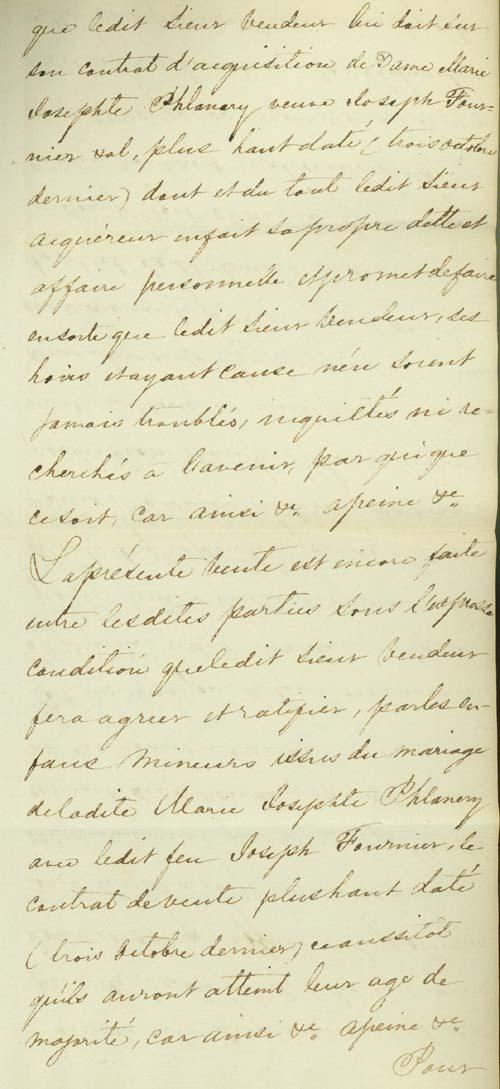 que ledit Sieur Vendeur lui doit sur
son contrat d'acquisition de Dame Marie
Josephte Phlanery veuve Joseph Four-
nier & al, plus haut daté (trois octobre
dernier) dont et du tout ledit Sieur
acquéreur en fait sa propre dette et
affaire personnelle et promet de faire
en sorte que ledit Sieur Vendeur, ses
hoirs et ayant cause n'en soient
jamais troublés, inquiétés ni re-
cherchés à l'avenir, par qui que
ce soit, car ainsi &c. apeine &c.
La présente Vente est encore faite
entre lesdites parties sous l'expresse
condition que ledit Sieur Vendeur
fera agréer et ratifier, par les en-
fans mineurs issus du mariage
de ladite Marie Josephte Phlanery
avec ledit feu Joseph Fournier, le
contrat de vente plus haut daté
(trois octobre dernier) ce aussitôt
qu'ils auront atteint leur age de
majorité, car ainsi &c. apeine &c.
Pour